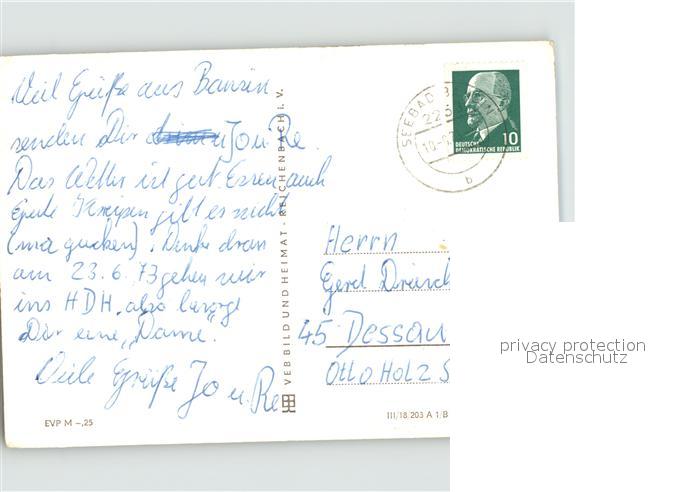 Viel Grüße aus Bansin
senden Dir Jo u. Re.
Das Wetter ist gut. Essen auch
gute Kneipen gibt es nicht
(ma gucken). Denke dran
am 23.6.73 gehen wir
ins HDH, also besorge
Dir eine „Dame“.
Viele Grüße Jo u. Re
EVP M –,25
VEB BILD UND HEIMAT · REICHENBACH I. V.
SEEBAD
10
DEUTSCHE
DEMOKRATISCHE REPUBLIK
b
Herrn
Gerd
45 Dessau
Otto Holz S
III/18 203 A 1/B
privacy protection
Datenschutz